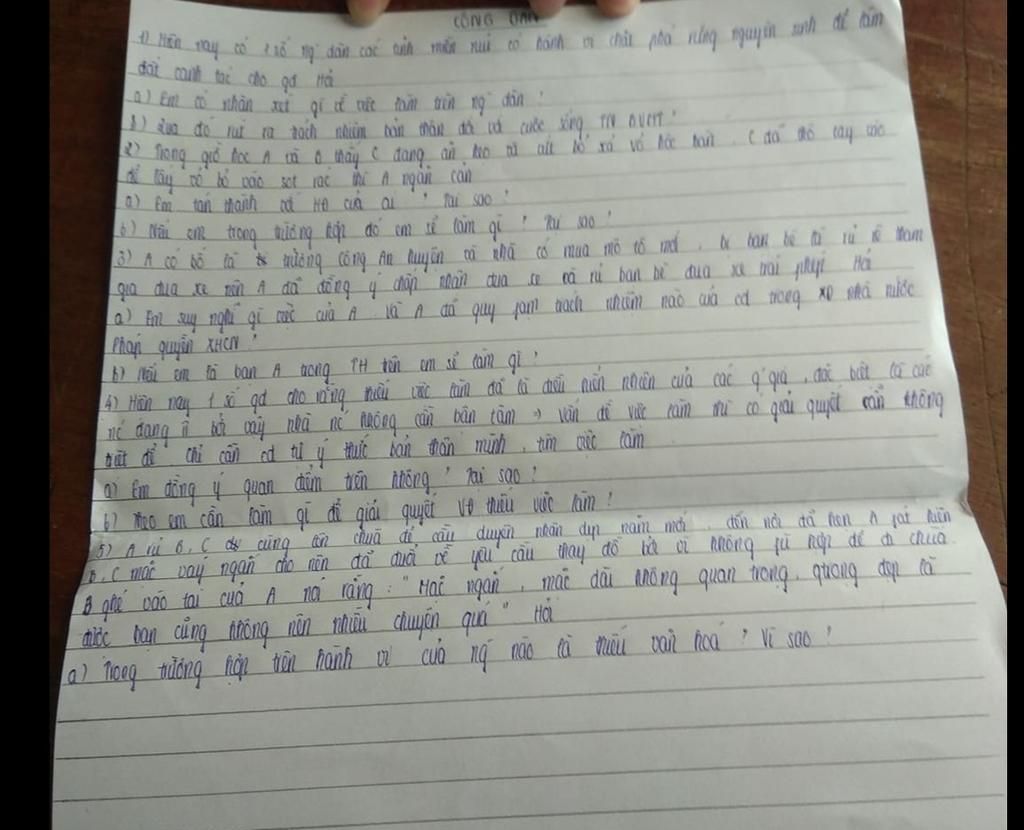 CÔNG DÂN
1) Hiện nay có 1 số ng dân các tỉnh miền núi có hành vi chặt phá rừng nguyên sinh để làm
đất canh tác cho gđ Hỏi
a) Em có nhận xét gì về việc làm trên ng dân ?
b) Qua đó rút ra trách nhiệm bản thân đối với cuộc sống TN &VMT ?
2) Trong giờ học A và B thấy C đang ăn kẹo và vứt bỏ xả vỏ hộc bàn . C đã thò tay vào
để lấy vỏ bỏ vào sọt rác thì A ngăn cản
a) Em tán thành với HĐ của ai ? Tại sao ?
b) Nếu em trong trường hợp đó em sẽ làm gì ? Tại sao ?
3) A có bố là trưởng công An huyện và nhà có mua mô tô mới . bị bạn bè rủ rê tham
gia đua xe nên A đã đồng ý chấp nhận đua xe và rủ bạn bè đua xe trái phép Hỏi
a) Em suy nghĩ gì việc của A và A đã quy phạm trách nhiệm nào của cd trong XD nhà nước
pháp quyền XHCN ?
b) Nếu em là bạn A trong TH trên em sẽ làm gì ?
4) Hiện nay 1 số gđ cho rằng thiếu việc làm đó là điều hiển nhiên của các q' gia , đặc biệt là các
nc đang bởi vậy nhà nc không cần bận tâm → vấn đề việc làm thì có giải quyết cần không
triệt để chỉ cần cd tự ý thức bản thân mình , tìm việc làm
a) Em đồng ý quan điểm trên không ? Tại sao ?
b) Theo em cần làm gì để giải quyết VĐ thiếu việc làm ?
5) A rủ B, C cùng đi chùa để cầu duyên nhân dịp năm mới . đến nơi đã hẹn A phát hiện
B, C mặc váy ngắn cho nên đã đuổi về yêu cầu thay đồ bởi vì không phù hợp để đi chùa.
B ghé vào tai của A nói rằng : "Mặc ngắn , mặc dài không quan trọng, quan trọng đẹp là
được bạn cũng không nên nhiều chuyện quá " Hỏi
a) Trong trường hợp trên hành vi của ng nào là thiếu văn hoá ? Vì sao ?